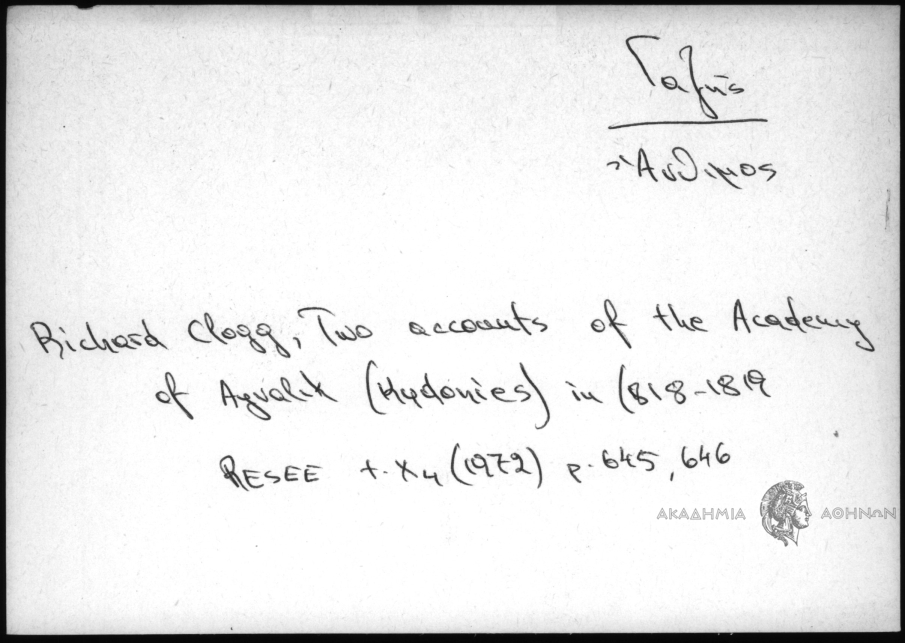 Γαζῆς
Ἄνθιμος
Richard Clogg, Two accounts of the Academy
of Ayvalik (Kydonies) in 1818-1819
RESEE t. X4 (1972) p. 645, 646
ΑΚΑΔΗΜΙΑ ΑΘΗΝΩΝ